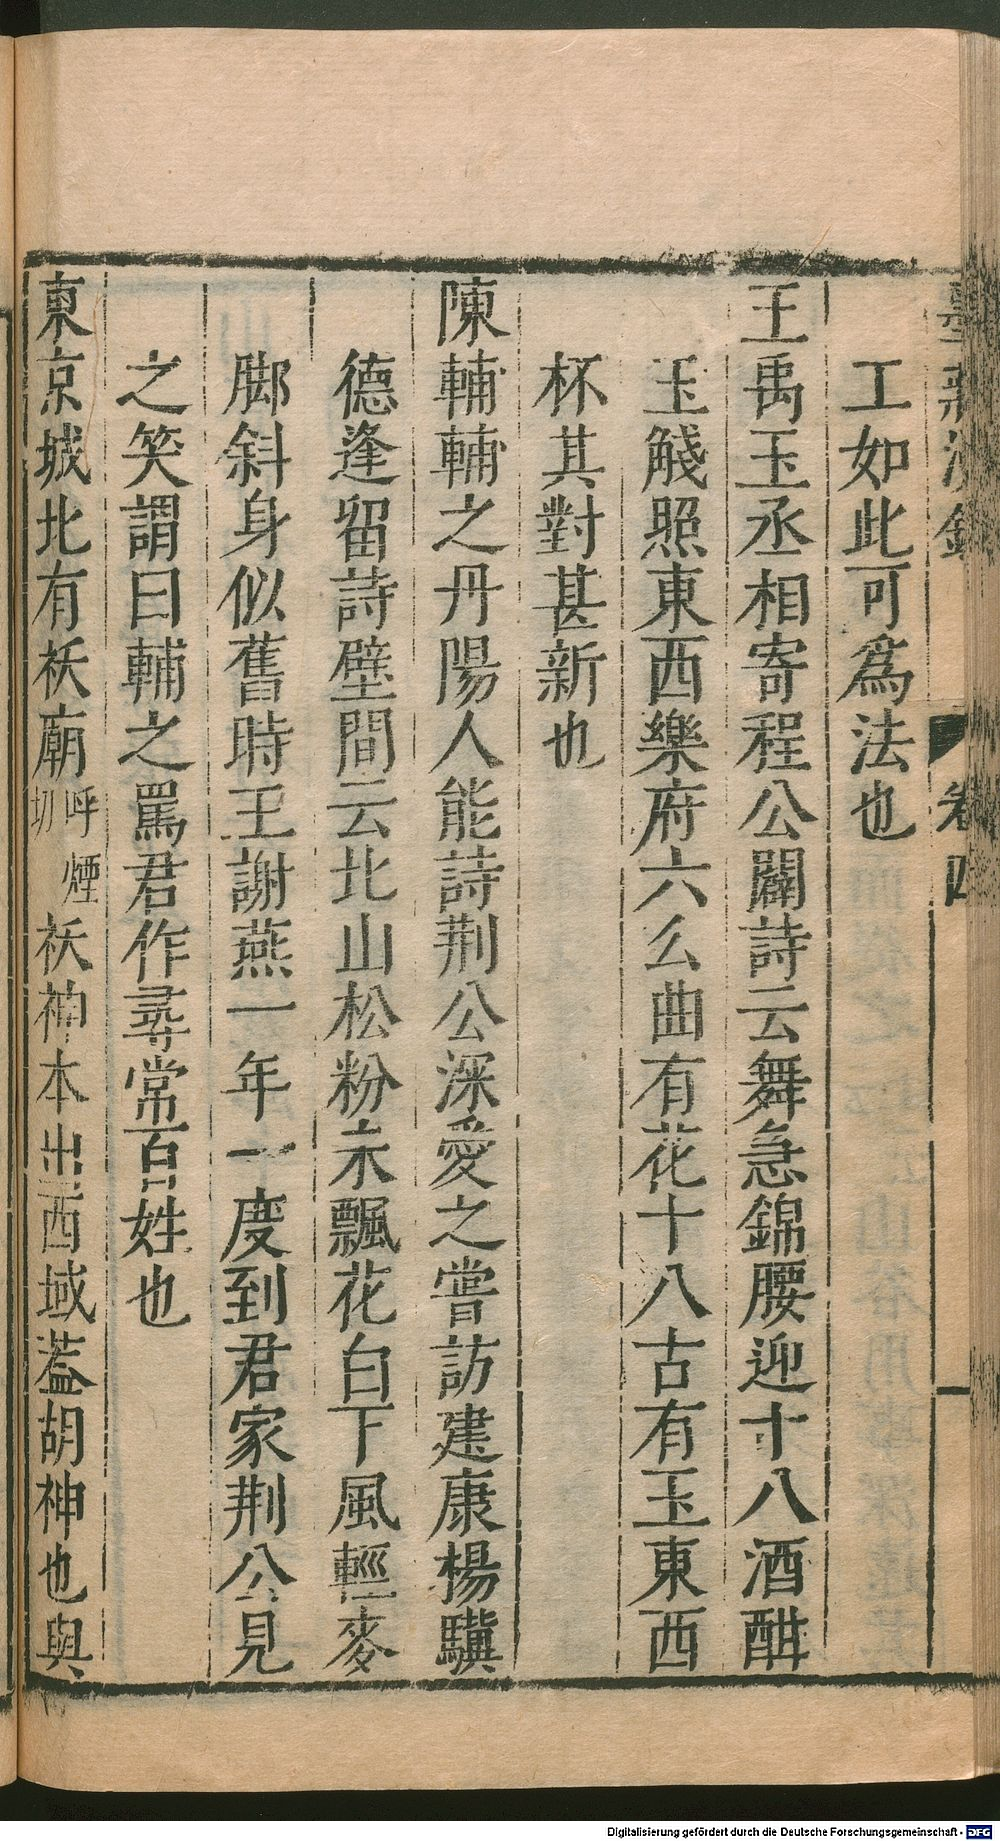 墨莊漫錄 卷四
工如此可爲法也
王禹玉丞相寄程公闢詩云舞急錦腰迎十八酒酣
玉醆照東西樂府六么曲有花十八古有玉東西
杯其對甚新也
陳輔輔之丹陽人能詩荆公深愛之嘗訪建康楊驥
德逢留詩壁間云北山松粉未飄花白下風輕麥
脚斜身似舊時王謝燕一年一度到君家荆公見
之笑謂曰輔之罵君作尋常百姓也
東京城北有祅廟呼煙切祅神本出西域葢胡神也與
Digitalisierung gefördert durch die Deutsche Forschungsgemeinschaft - DFG